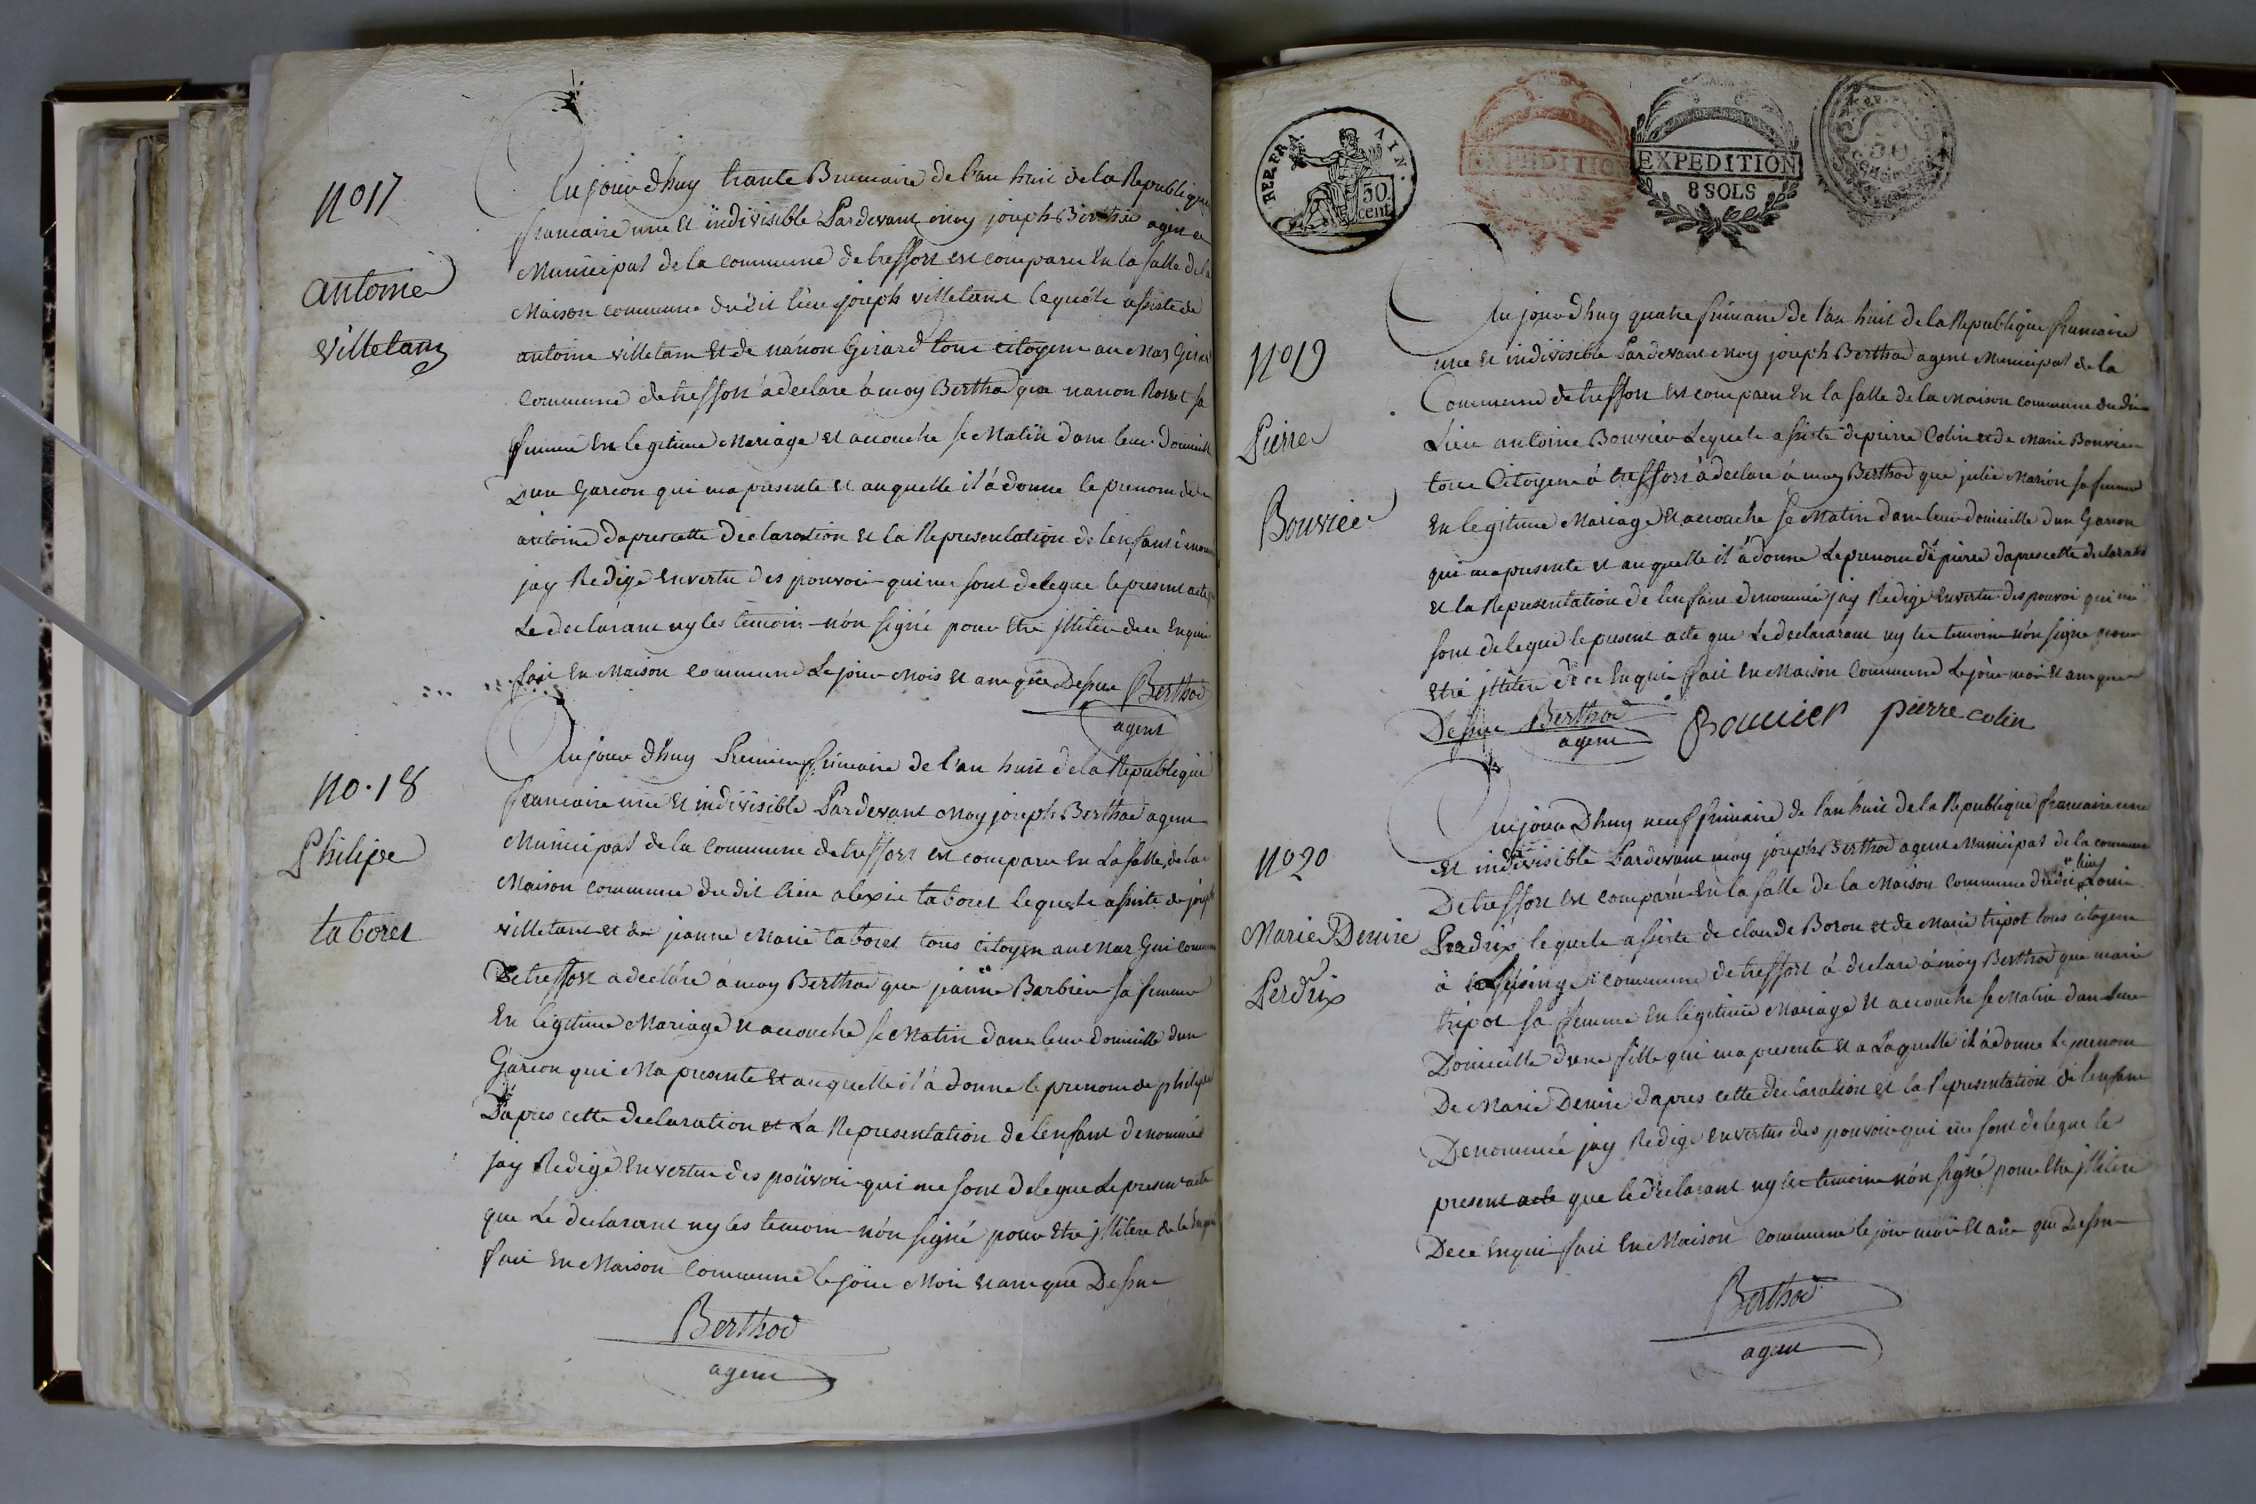 No 17
antoine
villetant
Aujourdhuy trante Brumaire de l'an huit de la Republique
francaise une et indivisible Pardevant moy joseph Berthod agent
Municipal de la commune de treffort est comparu En la salle de la
Maison commune dudit lieu joseph villetant lequele assiste de
antoine villetant Et de nanon Girard tous citoyens au Mas Girard
commune de treffort a declare à moy Berthod que nanon Rosset sa
femme En legitime Mariage et acouche se Matin dans leur Domicille
Dun Garcon qui ma presente et auquelle il à donne le prenom de
antoine dapres cette declaration et la Representation de lenfant
jay Redigé Envertu des pouvoir qui me sont delegue le present acte
Le declarant ny les temoins nón signé pour etre jlliteré dece Enquis
fait En Maison commune Le jour Mois et an que Dessus Berthod
agent
No. 18
Philipe
taboret
Aujourdhuy Premier frimaire de l'an huit de la Republique
francaise une et indivisible Pardevant moy joseph Berthod agent
Municipal de la commune de treffort est comparu En La salle de la
Maison commune dudit lieu alexis taboret lequele assiste de joseph
villetant et de jeanne Marie taboret tous citoyen au Mas Gui commune
De treffort a declare à moy Berthod que jeanne Barbier sa femme
En legitime Mariage et acouche se Matin dans leur domicille dun
Garcon qui Ma presente Et auquelle il à donne le prenom de philipe
Dapres cette declaration et La Representation de lenfant denommé
jay Redigé Envertu des pouvoir qui me sont delegue Le present acte
que Le declarant ny les temoin nón signé pour Etre jlliteré de ce Enquis
fait En Maison commune le jour Mois et an que Dessus
Berthod
agent
REP. FRA AIN.
50 cent
EXPEDITION
EXPEDITION
8 SOLS
50
No 19
Pierre
Bouvier
Aujourdhuy quatre frimaire de l'an huit de la Republique francaise
une et indivisible Pardevant Moy joseph Berthod agent Municipal de la
Commune de treffort est comparu En la salle de la Maison commune dudit
Lieu antoine Bouvier Lequele assisté de pierre Colin et de Marie Bouvier
tous Citoyens à treffort à declare à moy Berthod que julie Marion sa femme
En legitime Mariage Et acouche se Matin dans leur domicille dun Garcon
qui ma presente et auquelle il à donne Le prenom de pierre dapres cette declaration
et la Representation de lenfant denommé jay Redigé Envertu des pouvoir qui me
sont delegue le present acte que Le declararant ny les temoins nón signe pour
etre jlliteré dece Enquis fait En Maison Commune Le jour moi et an que
Dessus Berthod Bouvier pierre colin
agent
No 20
Marie Denise
Perdrix
Aujourdhuy neuf frimaire de l'an huit de la Republique francaise une
et indivisible Pardevant moy joseph Berthod agent Municipal de la commune
De treffort est comparu En la salle de la Maison Commune dudit lieu Louis
Perdrix lequele assiste de claude Boron et de Marie tripot tous citoyens
à commune de treffort à declare à moy Berthod que marie
tripot sa femme En legitime Mariage Et acouche se Matin dans leur
Domicille dune fille qui ma presente et a Laquelle il à donne Le prenom
De Marie Denise dapres cette declaration et la Representation de lenfant
Denommé jay Redigé Envertu des pouvoir qui me sont delegue le
present acte que le declarant ny les temoins nón signé pour etre jlliteré
Dece Enquis fait En Maison commune le jour mois et an que Dessus
Berthod
agent